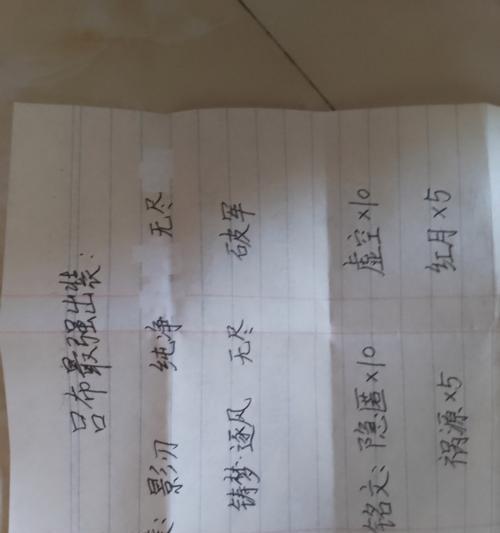 吕布最强出装：
：影刃 纯净 无尽
铸梦·逐风 无尽 破军
铭文：隐匿×10 虚空×10
祸源×5 红月×5